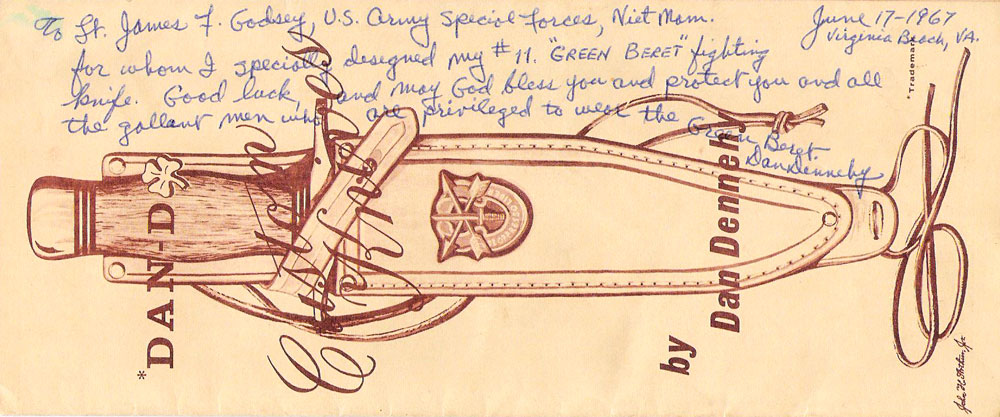 To Lt. James F. Godsey, U.S. Army Special Forces, Viet Nam.
June 17-1967
Virginia Beach, VA.
for whom I specially designed my #11. "GREEN BERET" fighting
knife. Good luck, and may God bless you and protect you and all
the gallant men who are privileged to wear the Green Beret.
Dan Dennehy
*Trademark
*DAN-D
Custom Knives
by Dan Dennehy